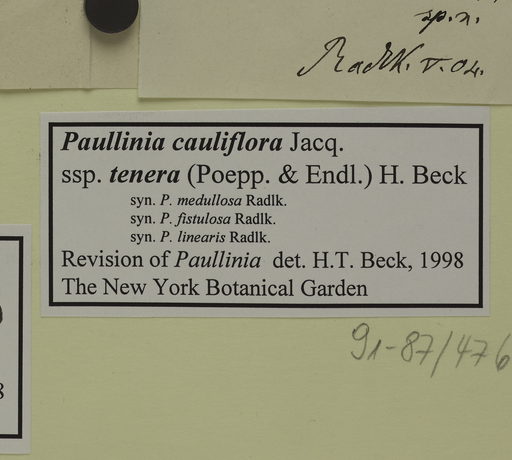 sp. n.
Radlk. v. 04.
Paullinia cauliflora Jacq.
ssp. tenera (Poepp. & Endl.) H. Beck
syn. P. medullosa Radlk.
syn. P. fistulosa Radlk.
syn. P. linearis Radlk.
Revision of Paullinia det. H.T. Beck, 1998
The New York Botanical Garden
91-87/476
8